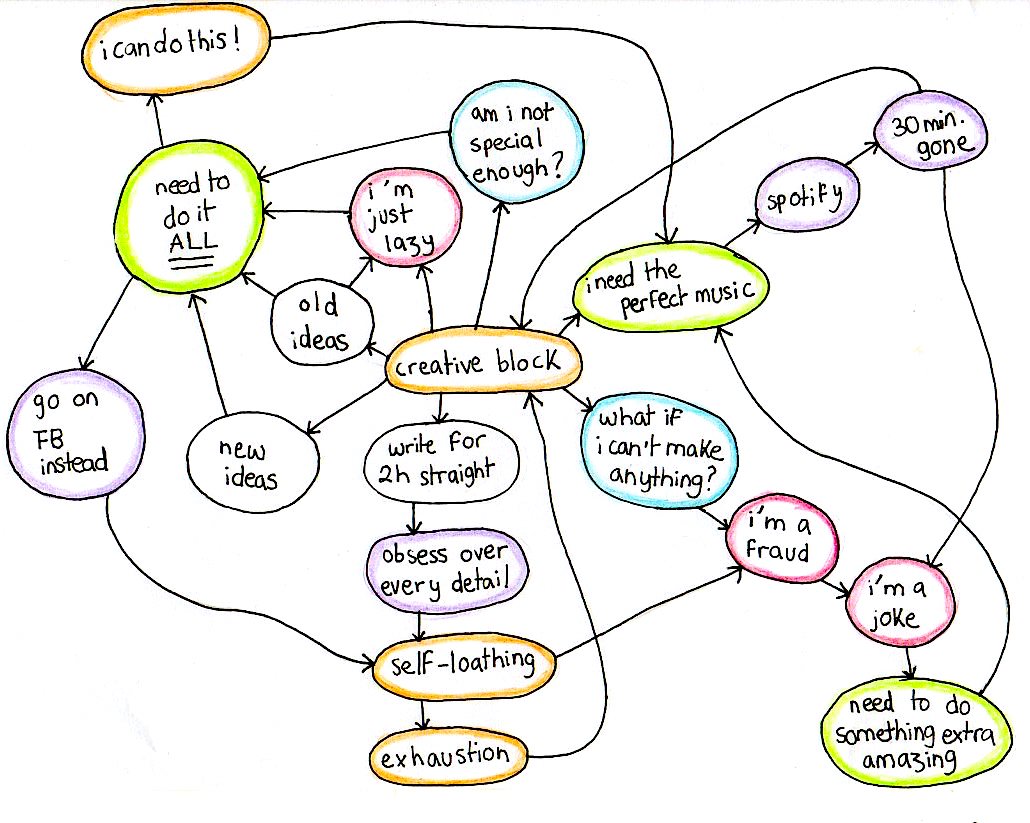 i can do this!
am i not
special
enough?
30 min.
gone
need to
do it
ALL
i'm
just
lazy
spotify
i need the
perfect music
old
ideas
creative block
go on
FB
instead
new
ideas
write for
2h straight
what if
i can't make
anything?
i'm a
fraud
obsess over
every detail
i'm a
joke
self-loathing
need to do
something extra
amazing
exhaustion